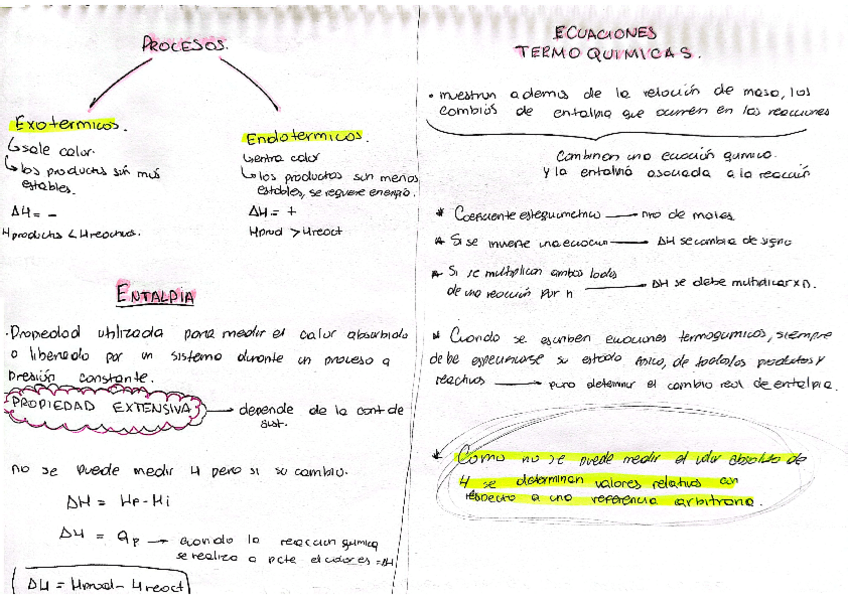 PROCESOS.
Exotermicos.
↳ sale calor.
↳ los productos son mas
estables.
ΔH = -
Hproductos < Hreactivos.
Endotermicos.
↳ entra calor
↳ los productos son menos
estables, se requiere energia.
ΔH = +
Hprod > Hreact
ENTALPIA
· Propiedad utilizada para medir el calor absorbido
o liberado por un sistema durante un proceso a
presión constante.
PROPIEDAD EXTENSIVA → depende de la cant de
sust.
no se puede medir H pero si su cambio.
ΔH = Hp - Hi
ΔH = qp → cuando la reaccion quimica
se realiza a pcte el calor es = ΔH
ΔH = Hprod - Hreact
ECUACIONES
TERMO QUIMICAS.
· muestran ademas de la relación de masa, los
cambios de entalpia que ocurren en las reacciones
Combinan una ecuación quimica.
y la entalpia asociada a la reacción
* Coeficiente estequimetrico → nro de moles.
* Si se invierte una ecuacion → ΔH se cambia de signo
* Si se multiplican ambos lados
de una reacción por n → ΔH se debe multiplicar x n.
* Cuando se escriben ecuaciones termoquimicas, siempre
debe especificarse su estado fisico, de todos los productos y
reactivos → para determinar el cambio real de entalpia.
* Como no se puede medir el valor absoluto de
H se determinan valores relativos con
respecto a una referencia arbitraria.